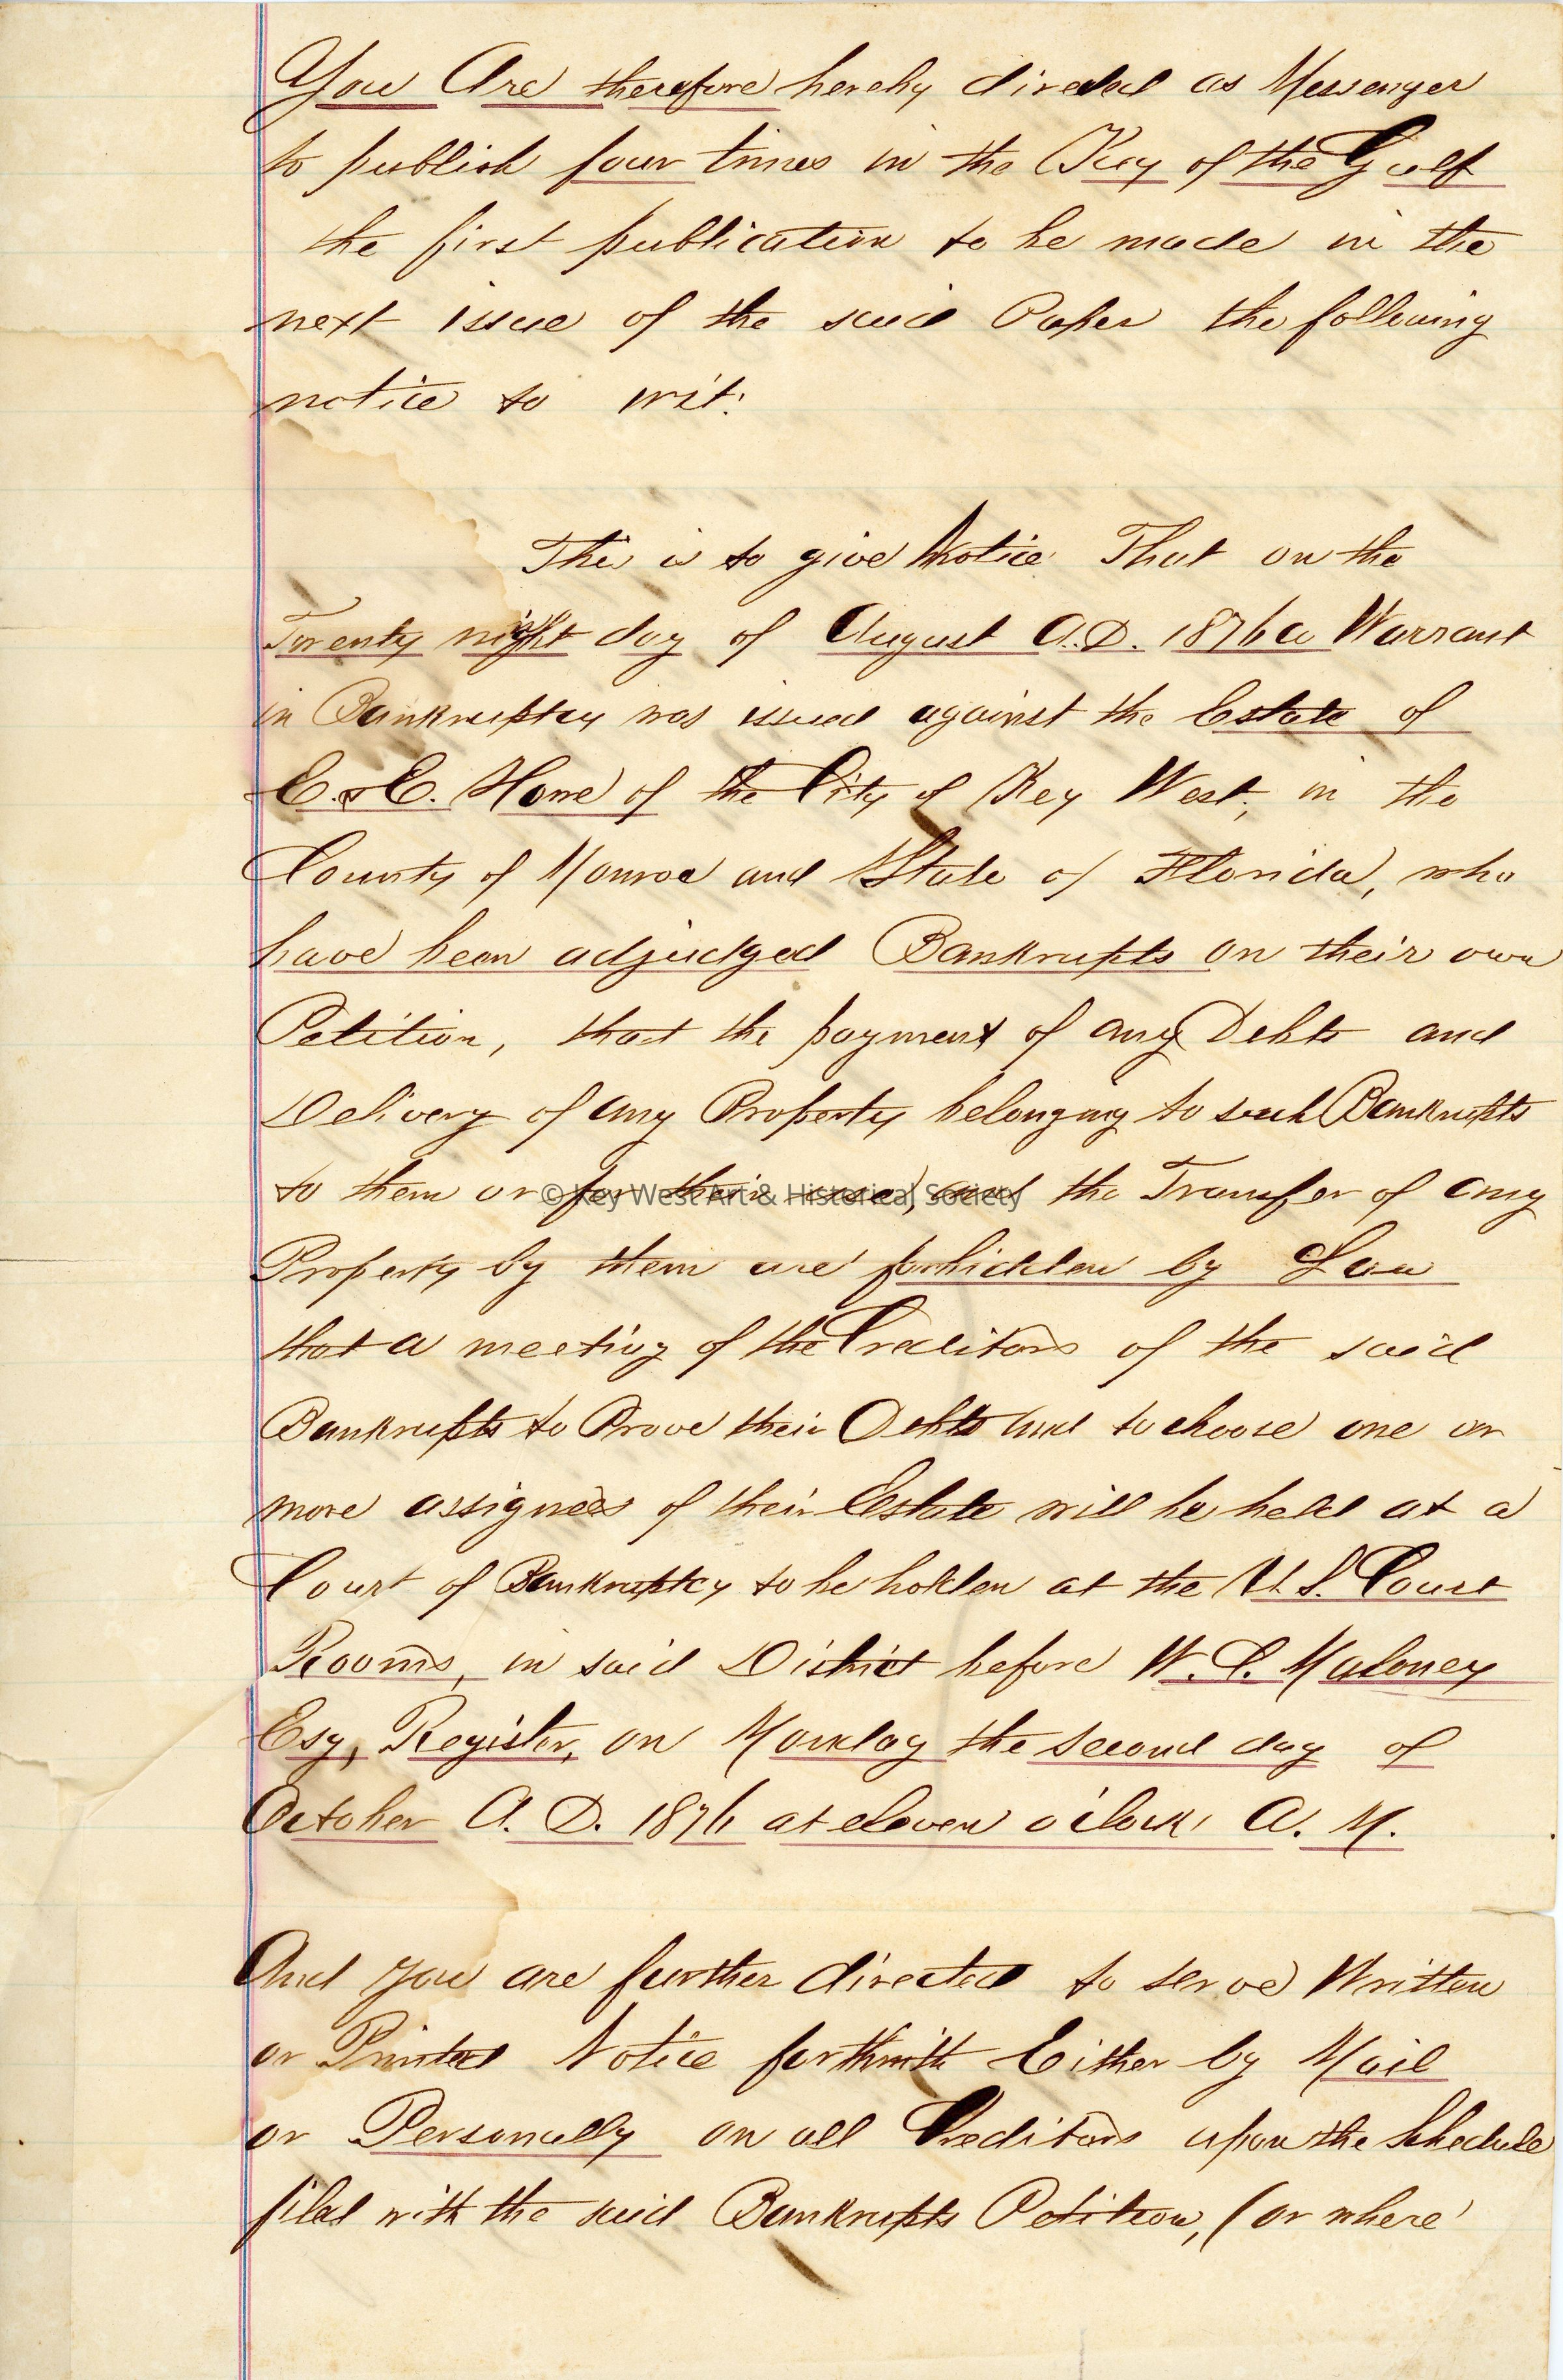 You Are therefore hereby directed as Messenger
to publish four times in the Key of the Gulf
the first publication to be made in the
next issue of the said Paper the following
notice to wit:
This is to give Notice That on the
Twenty day of August A.D. 1876 a Warrant
in Bankruptcy was issued against the Estate of
E. & E. Howe of the City of Key West, in the
County of Monroe and State of Florida, who
have been adjudged Bankrupts on their own
Petition, that the payment of any Debts and
Delivery of any Property belonging to such Bankrupts
to them or for their use, and the Transfer of any
© Key West Art & Historical Society
Property by them are forbidden by Law
that a meeting of the Creditors of the said
Bankrupts to Prove their Debts and to choose one or
more assignees of their Estate will be held at a
Court of Bankruptcy to be holden at the U.S. Court
Rooms, in said District before W. C. Maloney
Esq, Register, on Monday the second day of
October A. D. 1876 at eleven o'clock, A. M.
And you are further directed to serve Written
or Printed Notice forthwith Either by Mail
or Personally on all Creditors upon the Schedule
filed with the said Bankrupts Petition, (or where